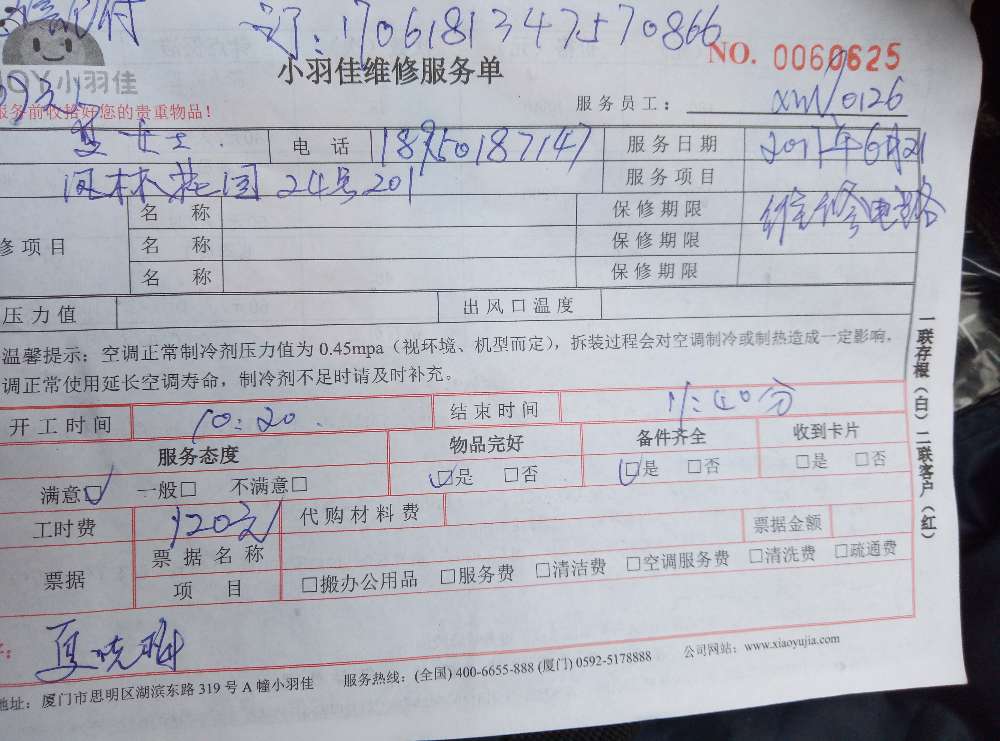 微信付 订:1706181347570866
JOY小羽佳
小羽佳维修服务单 NO. 0060625
服务前收拾好您的贵重物品!
服务员工: XM10126
夏女士 电话 18950187147 服务日期 2017年6月21
24号201 服务项目
名称 保修期限 维修电路
修项目 名称 保修期限
名称 保修期限
压力值 出风口温度
温馨提示:空调正常制冷剂压力值为 0.45mpa(视环境、机型而定),拆装过程会对空调制冷或制热造成一定影响,
调正常使用延长空调寿命,制冷剂不足时请及时补充。
开工时间 10:20 结束时间 11:40分
服务态度 物品完好 备件齐全 收到卡片
满意☑ 一般□ 不满意□ ☑是 □否 ☑是 □否 □是 □否
工时费 120元 代购材料费
票据 票据名称 票据金额
项目 □搬办公用品 □服务费 □清洁费 □空调服务费 □清洗费 □疏通费
夏晓
地址:厦门市思明区湖滨东路 319 号 A 幢小羽佳 服务热线:(全国) 400-6655-888 (厦门) 0592-5178888 公司网站:www.xiaoyujia.com
一联存根(白)二联客户(红)